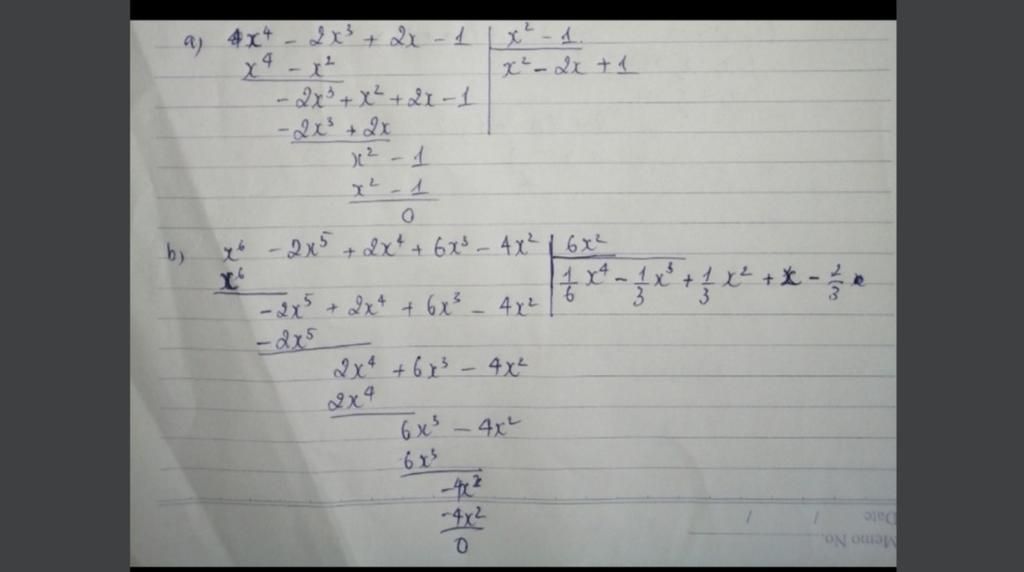 a) 4x⁴ - 2x³ + 2x - 1 | x² - 1
x⁴ - x² | x² - 2x + 1
- 2x³ + x² + 2x - 1
- 2x³ + 2x
x² - 1
x² - 1
0
b) x⁶ - 2x⁵ + 2x⁴ + 6x³ - 4x² | 6x²
x⁶ | 1/6 x⁴ - 1/3 x³ + 1/3 x² + x - 2/3
- 2x⁵ + 2x⁴ + 6x³ - 4x²
- 2x⁵
2x⁴ + 6x³ - 4x²
2x⁴
6x³ - 4x²
6x³
-4x²
-4x²
0
Date / /
Memo No.